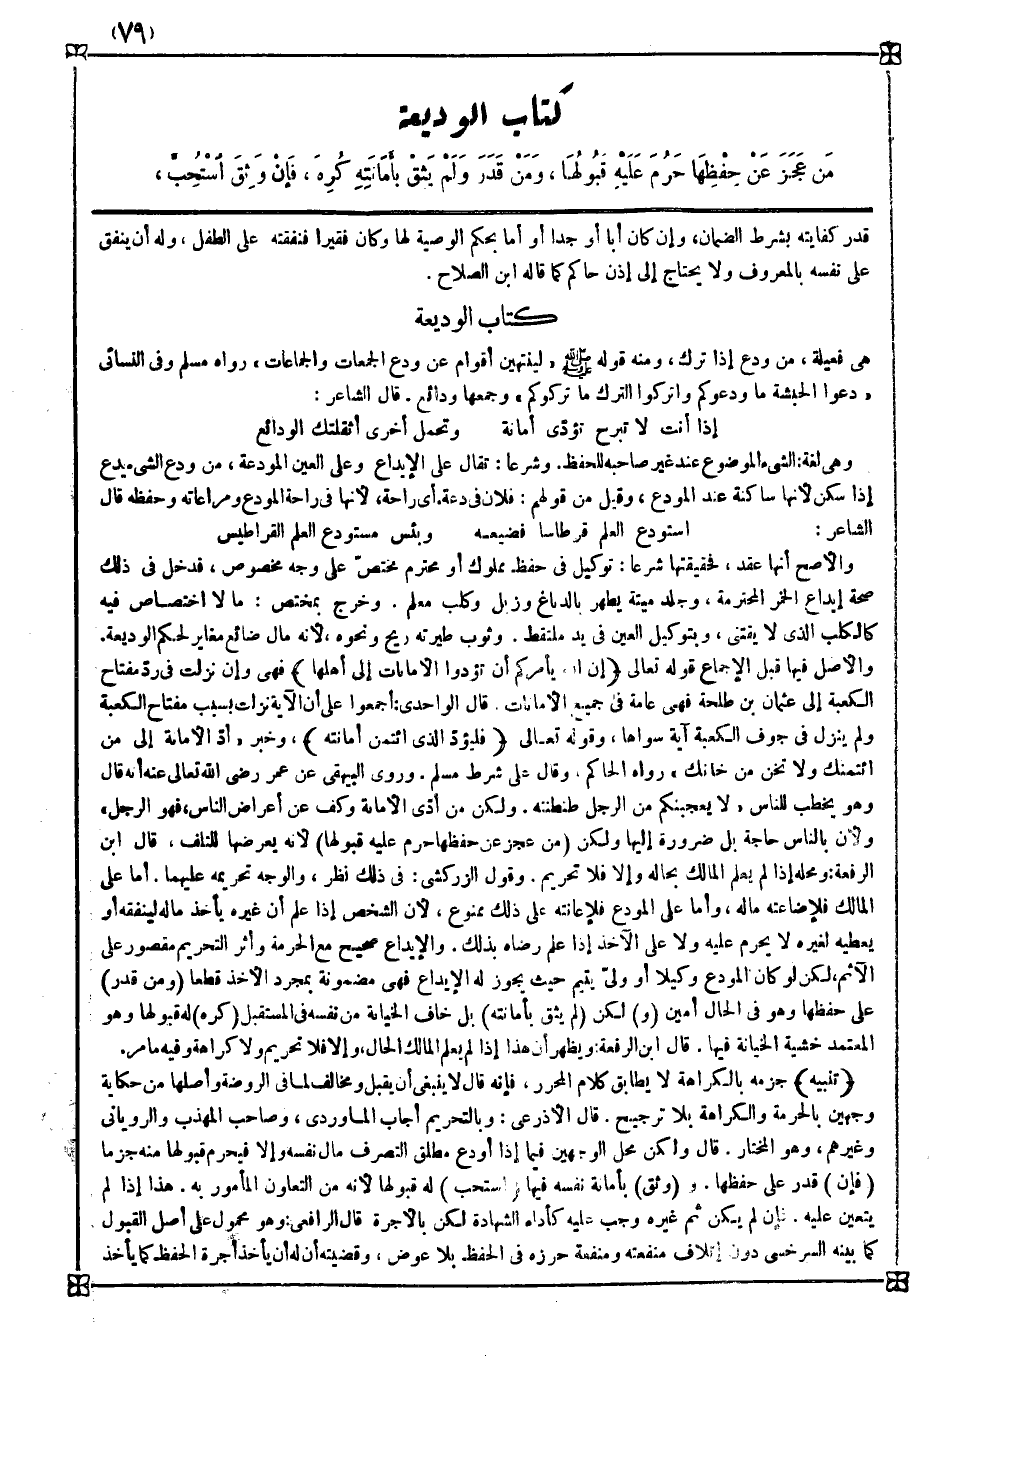 (٧٩)
كتاب الوديعة
مَن عَجَزَ عَنْ حِفْظِهَا حَرُمَ عَلَيْهِ قَبُولُهَا ، وَمَنْ قَدَرَ وَلَمْ يَثِقْ بِأَمَانَتِهِ كُرِهَ ، فَإِنْ وَثِقَ اسْتُحِبَّ ،
قدر كفايته بشرط الضمان، وإن كان أبا أو جدا أو أما بحكم الوصية لها وكان فقيرا فنفقته على الطفل ، وله أن ينفق
على نفسه بالمعروف ولا يحتاج إلى إذن حاكم كما قاله ابن الصلاح .
كتاب الوديعة
هى فعيلة ، من ودع إذا ترك ، ومنه قوله ﷺ « لينتهين أقوام عن ودع الجمعات والجماعات » رواه مسلم وفى النسائى
« دعوا الحبشة ما ودعوكم واتركوا الترك ما تركوكم » وجمعها ودائع . قال الشاعر :
إذا أنت لا تبرح تؤدّى أمانة وتحمل أخرى أثقلتك الودائع
وهى لغة: الشىء الموضوع عند غير صاحبه للحفظ. وشرعا : تقال على الإيداع وعلى العين المودعة ، من ودع الشىء يدع
إذا سكن لأنها ساكنة عند المودع ، وقيل من قولهم : فلان فى دعة. أى راحة، لأنها فى راحة المودع ومراعاته وحفظه قال
الشاعر : استودع العلم قرطاسا فضيعه وبئس مستودع العلم القراطيس
والأصح أنها عقد ، فحقيقتها شرعا : توكيل فى حفظ مملوك أو محترم مختصّ على وجه مخصوص ، فدخل فى ذلك
صحة إيداع الخمر المحترمة ، وجلد ميتة يطهر بالدباغ وزبل وكلب معلم . وخرج بمختص : ما لا اختصاص فيه
كالكلب الذى لا يقتنى ، وبتوكيل العين فى يد ملتقط . وثوب طيرته ريح ونحوه ، لأنه مال ضائع مغاير لحكم الوديعة.
والأصل فيها قبل الإجماع قوله تعالى ﴿إن الله يأمركم أن تؤدوا الأمانات إلى أهلها﴾ فهى وإن نزلت فى ردّ مفتاح
الكعبة إلى عثمان بن طلحة فهى عامة فى جميع الأمانات . قال الواحدى: أجمعوا على أن الآية نزلت بسبب مفتاح الكعبة
ولم ينزل فى جوف الكعبة آية سواها ، وقوله تعالى ﴿ فليؤدّ الذى ائتمن أمانته ﴾ ، وخبر « أدّ الأمانة إلى من
ائتمنك ولا تخن من خانك » رواه الحاكم . وقال على شرط مسلم . وروى البيهقى عن عمر رضى الله تعالى عنه أنه قال
وهو يخطب للناس « لا يعجبنكم من الرجل طنطنته . ولكن من أدّى الأمانة وكف عن أعراض الناس، فهو الرجل»
ولأن بالناس حاجة بل ضرورة إليها ولكن (من عجز عن حفظها حرم عليه قبولها) لأنه يعرضها للتلف ، قال ابن
الرفعة: ومحله إذا لم يعلم المالك بحاله وإلا فلا تحريم . وقول الزركشى : فى ذلك نظر ، والوجه تحريمه عليهما . أما على
المالك فلإضاعته ماله ، وأما على المودع فلإعانته على ذلك ممنوع ، لأن الشخص إذا علم أن غيره يأخذ ماله لينفقه أو
يعطيه لغيره لا يحرم عليه ولا على الآخذ إذا علم رضاه بذلك . والإيداع صحيح مع الحرمة وأثر التحريم مقصور على
الأثم، لكن لو كان المودع وكيلا أو ولىّ يتيم حيث يجوز له الإيداع فهى مضمونة بمجرد الأخذ قطعا (ومن قدر)
على حفظها وهو فى الحال أمين (و) لكن (لم يثق بأمانته) بل خاف الخيانة من نفسه فى المستقبل (كره) له قبولها وهو
المعتمد خشية الخيانة فيها . قال ابن الرفعة: ويظهر أن هذا إذا لم يعلم المالك الحال، وإلا فلا تحريم ولا كراهة وفيه مامر.
﴿تنبيه﴾ جزمه بالكراهة لا يطابق كلام المحرر ، فإنه قال لا ينبغى أن يقبل ومخالف لما فى الروضة وأصلها من حكاية
وجهين بالحرمة والكراهة بلا ترجيح . قال الأذرعى : وبالتحريم أجاب الماوردى ، وصاحب المهذب والرويانى
وغيرهم ، وهو المختار . قال ولكن محل الوجهين فيما إذا أودع مطلق التصرف مال نفسه وإلا فيحرم قبولها منه جزما
(فإن) قدر على حفظها . و (وثق) بأمانة نفسه فيها (استحب) له قبولها لأنه من التعاون المأمور به . هذا إذا لم
يتعين عليه . فإن لم يكن ثم غيره وجب عليه كأداء الشهادة لكن بالأجرة قال الرافعى: وهو محمول على أصل القبول
كما بينه السرخسى دون إتلاف منفعته ومنفعة حرزه فى الحفظ بلا عوض ، وقضيته أن له أن يأخذ أجرة الحفظ كما يأخذ